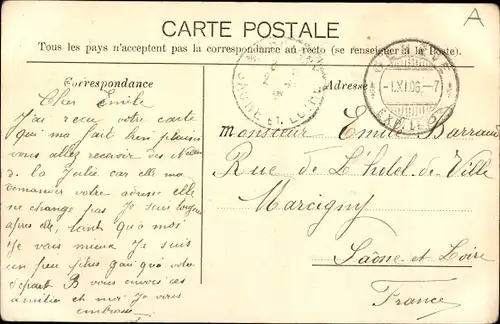 A
CARTE POSTALE
Tous les pays n'acceptent pas la correspondance au recto (se renseigner à la Poste).
Correspondance
Adresse
GENÈVE
-1.XI.06.-7
EXP. LETT.
SAONE-ET-LOIRE
Cher Emile
J'ai reçu votre carte
qui ma fait bien plaisir
vous allez recevoir des
de la Julie car elle m'a
demander votre adresse elle
ne change pas Je suis toujours
après elle, tant qu'à moi
Je vais mieux Je suis
un peu plus gai que votre
départ B vous envoie ces
amitiés et moi Je vous
embrasse
Monsieur Emile Barraud
Rue de L'hotel-de-Ville
Marcigny
Saône-et-Loire
France